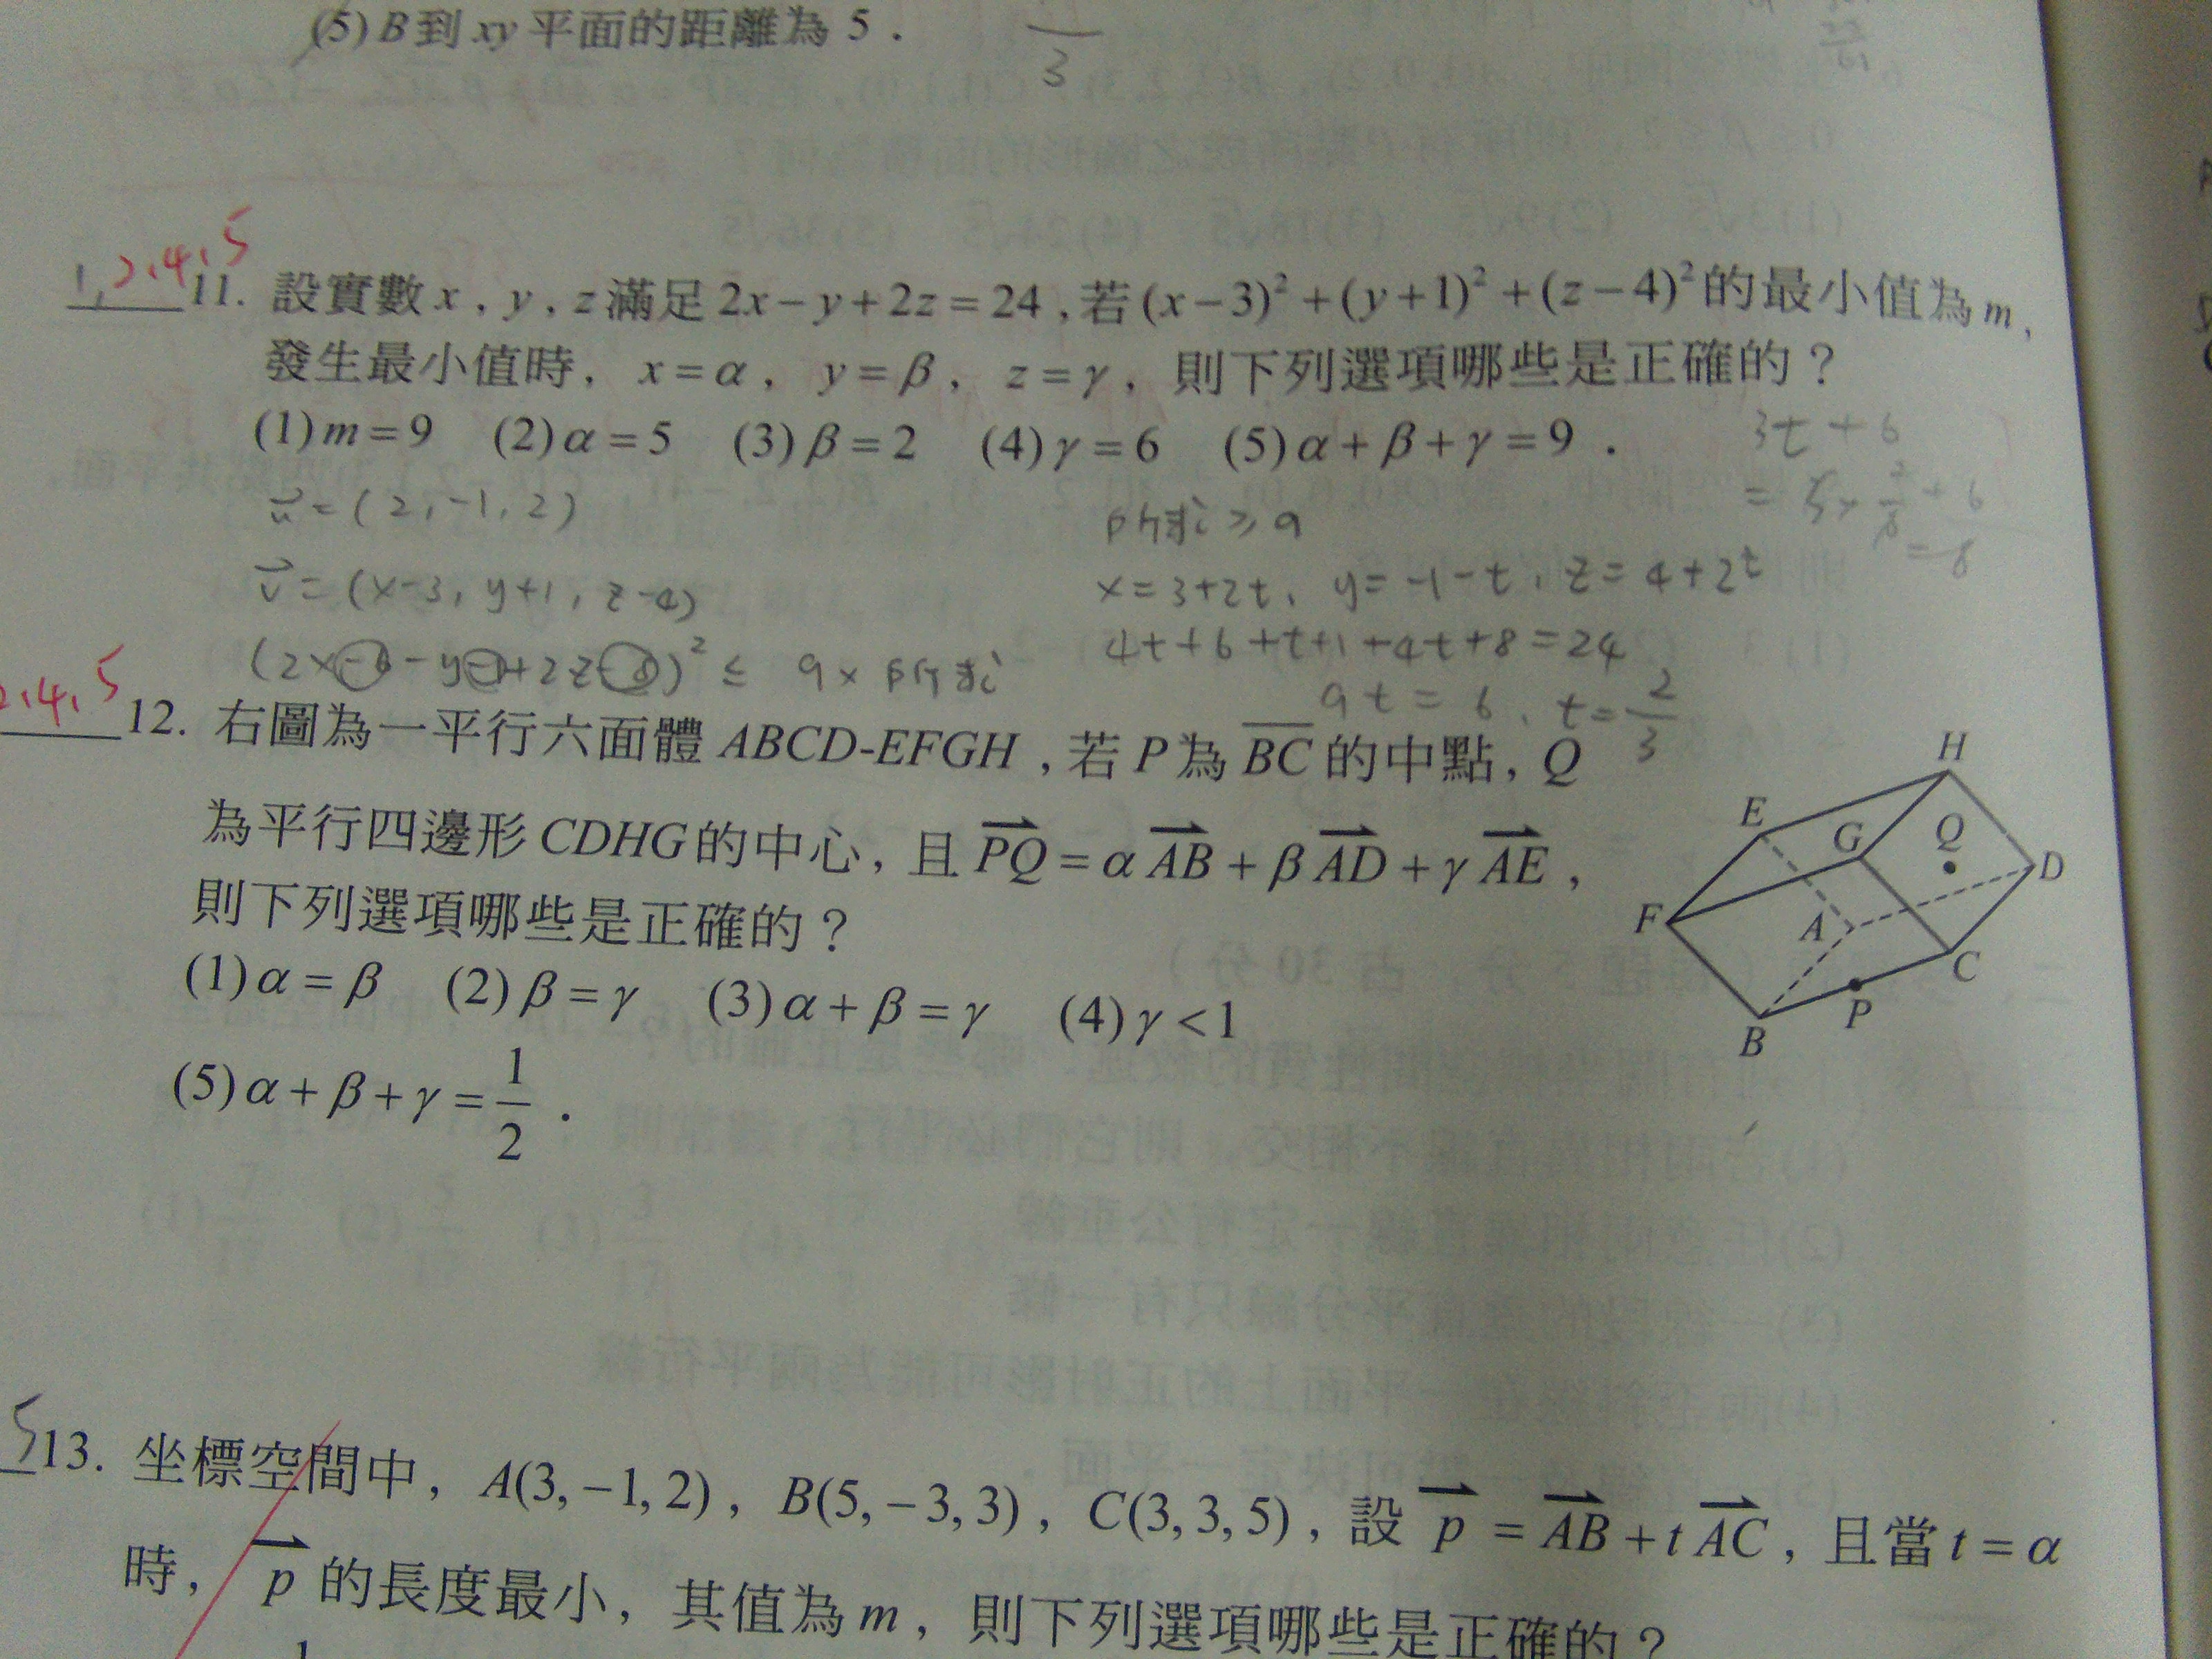 (5) B 到 xy 平面的距離為 5 .
3
1, 2.4.5
11. 設實數 x , y , z 滿足 2x − y + 2z = 24 , 若 (x − 3)² + (y + 1)² + (z − 4)² 的最小值為 m ,
發生最小值時, x = α , y = β , z = γ , 則下列選項哪些是正確的?
(1) m = 9 (2) α = 5 (3) β = 2 (4) γ = 6 (5) α + β + γ = 9 .
3t + 6
u = (2, -1, 2)
所求 ≥ 9
= 8
v = (x-3, y+1, z-4)
x = 3+2t, y = -1-t, z = 4+2t
(2x-6-y-1+2z-8)² ≤ 9 × 所求
4t+6+t+1+4t+8=24
9t = 6, t = 2/3
2.4.5
12. 右圖為一平行六面體 ABCD-EFGH , 若 P 為 BC 的中點, Q
為平行四邊形 CDHG 的中心, 且 PQ = α AB + β AD + γ AE ,
則下列選項哪些是正確的?
(1) α = β (2) β = γ (3) α + β = γ (4) γ < 1
(5) α + β + γ = 1/2 .
H
E
G
Q
D
F
A
C
P
B
5
13. 坐標空間中, A(3, −1, 2) , B(5, −3, 3) , C(3, 3, 5) , 設 p = AB + t AC , 且當 t = α
時, p 的長度最小, 其值為 m , 則下列選項哪些是正確的?
1